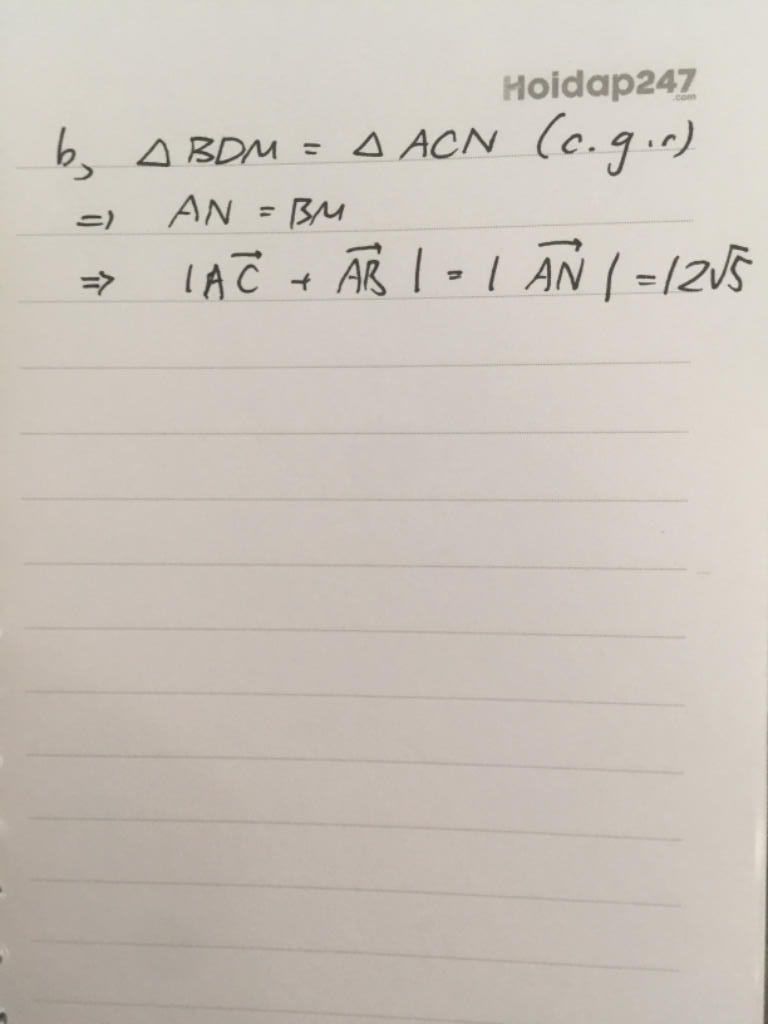 Hoidap247
.com
b, △ BDM = △ ACN (c.g.c)
=> AN = BM
=> |A\overrightarrow{C} + \overrightarrow{AB}| = |\overrightarrow{AN}| = 12√5